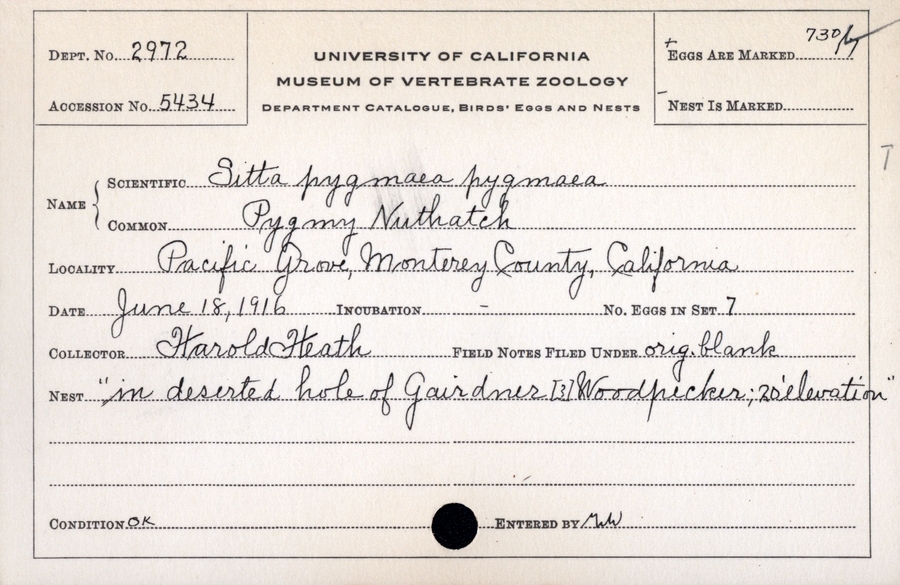 DEPT. No. 2972
ACCESSION No. 5434
UNIVERSITY OF CALIFORNIA
MUSEUM OF VERTEBRATE ZOOLOGY
DEPARTMENT CATALOGUE, BIRDS' EGGS AND NESTS
+ EGGS ARE MARKED 730/7
- NEST IS MARKED
T
NAME { SCIENTIFIC Sitta pygmaea pygmaea
COMMON Pygmy Nuthatch
LOCALITY Pacific Grove, Monterey County, California
DATE June 18, 1916 INCUBATION - No. EGGS IN SET 7
COLLECTOR Harold Heath FIELD NOTES FILED UNDER orig. blank
NEST "in deserted hole of Gairdner [?] Woodpecker; 20' elevation"
CONDITION OK ENTERED BY